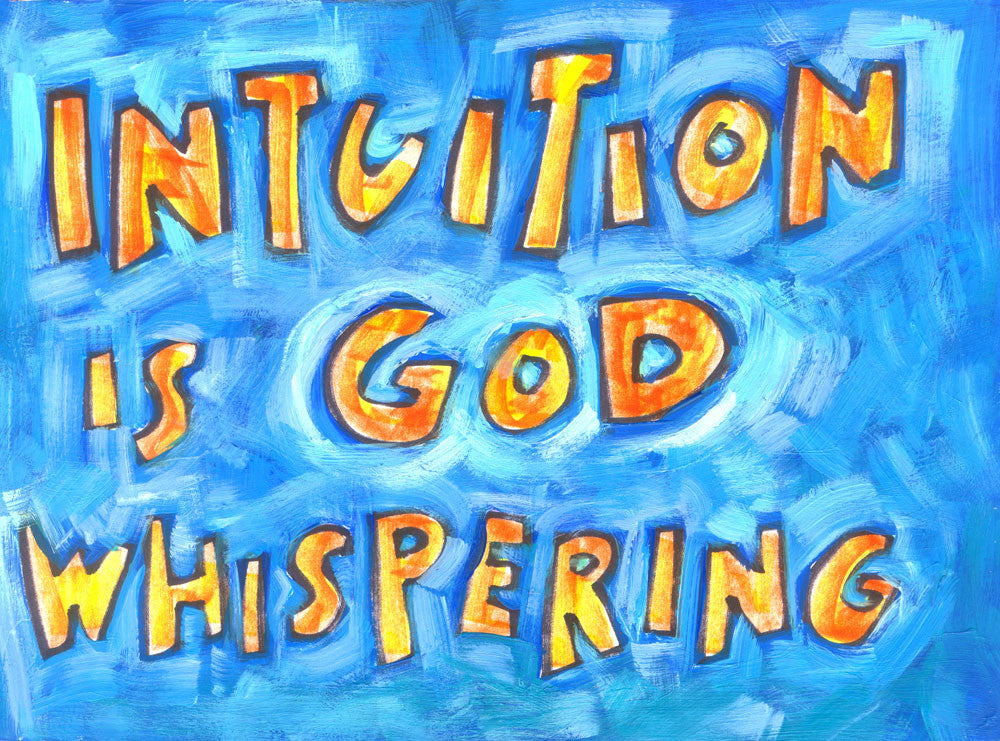 INTUITION
IS GOD
WHISPERING